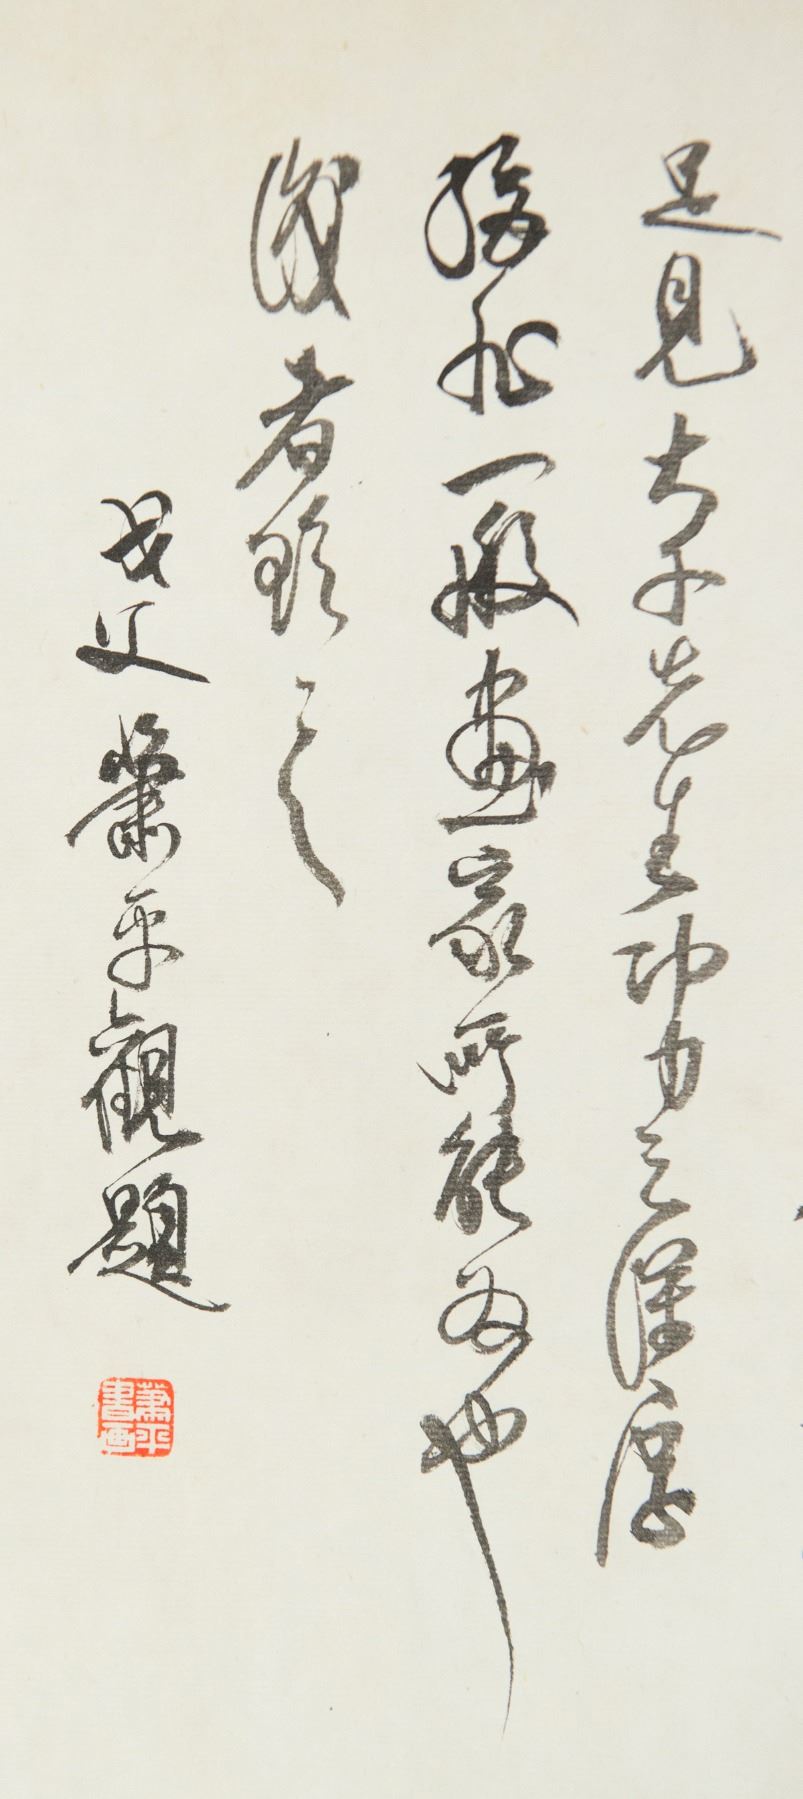 足見先生功力之深厚
非一般畫家所能為也
識者珍之
戈父蕭平觀題
蕭平書画